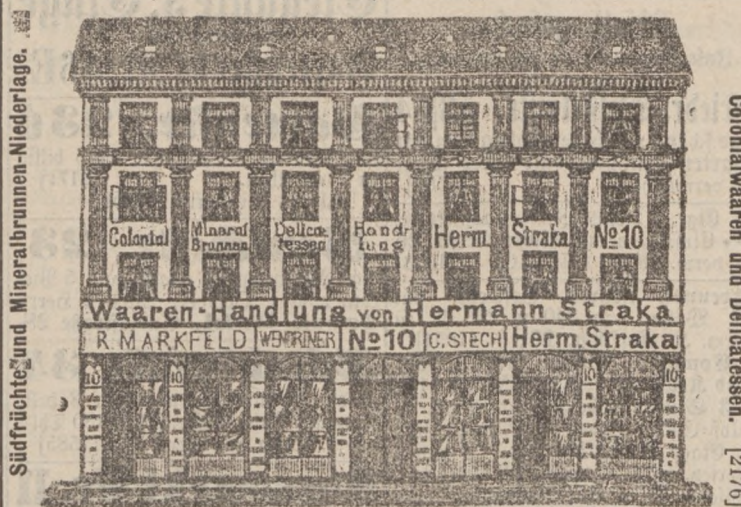 Südfrüchte und Mineralbrunnen-Niederlage.
Colonial
Mineral
Brunnen
Delica-
tessen
Hand-
lung
Herm.
Straka
No 10
Waaren-Handlung von Hermann Straka
R. MARKFELD WENDRINER No 10 C. STECH Herm. Straka
10 10 10 10
Colonialwaaren und Delicatessen. [2176]